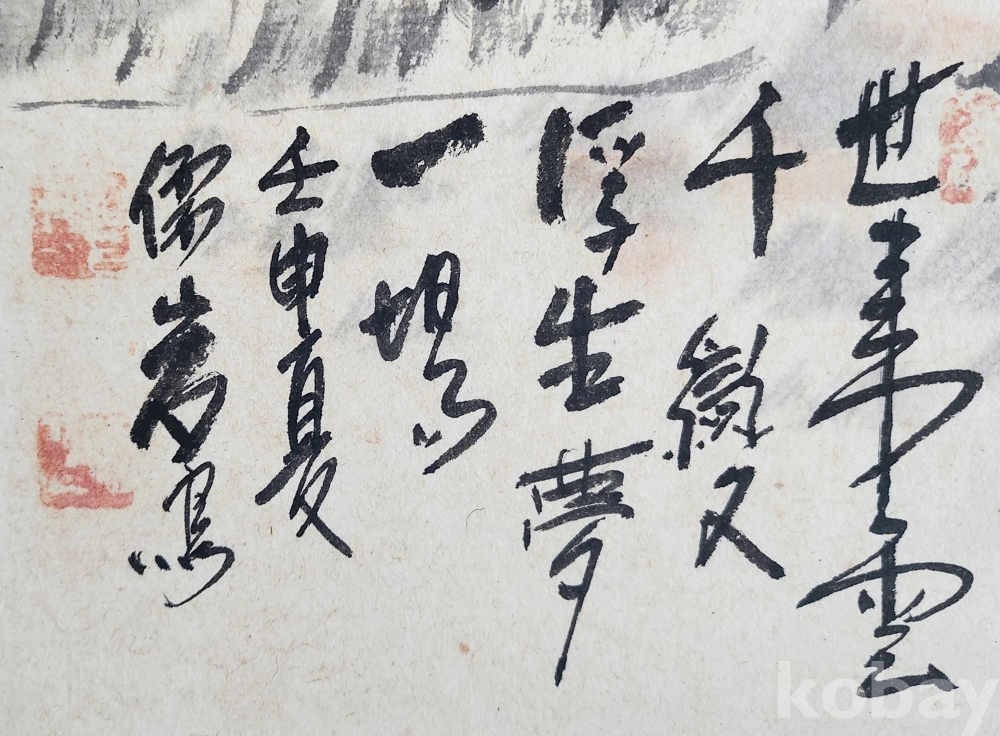 世事雲
千變
浮生夢
一場
壬申夏
寫
kobay